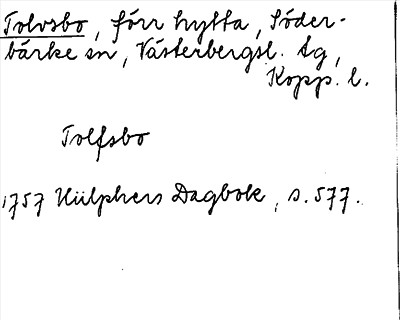 Tolvsbo, förr hytta, Söder-
bärke sn, Västerbergsl. tg,
Kopp. l.
Tolfsbo
1757 Hülphers Dagbok, s. 577.